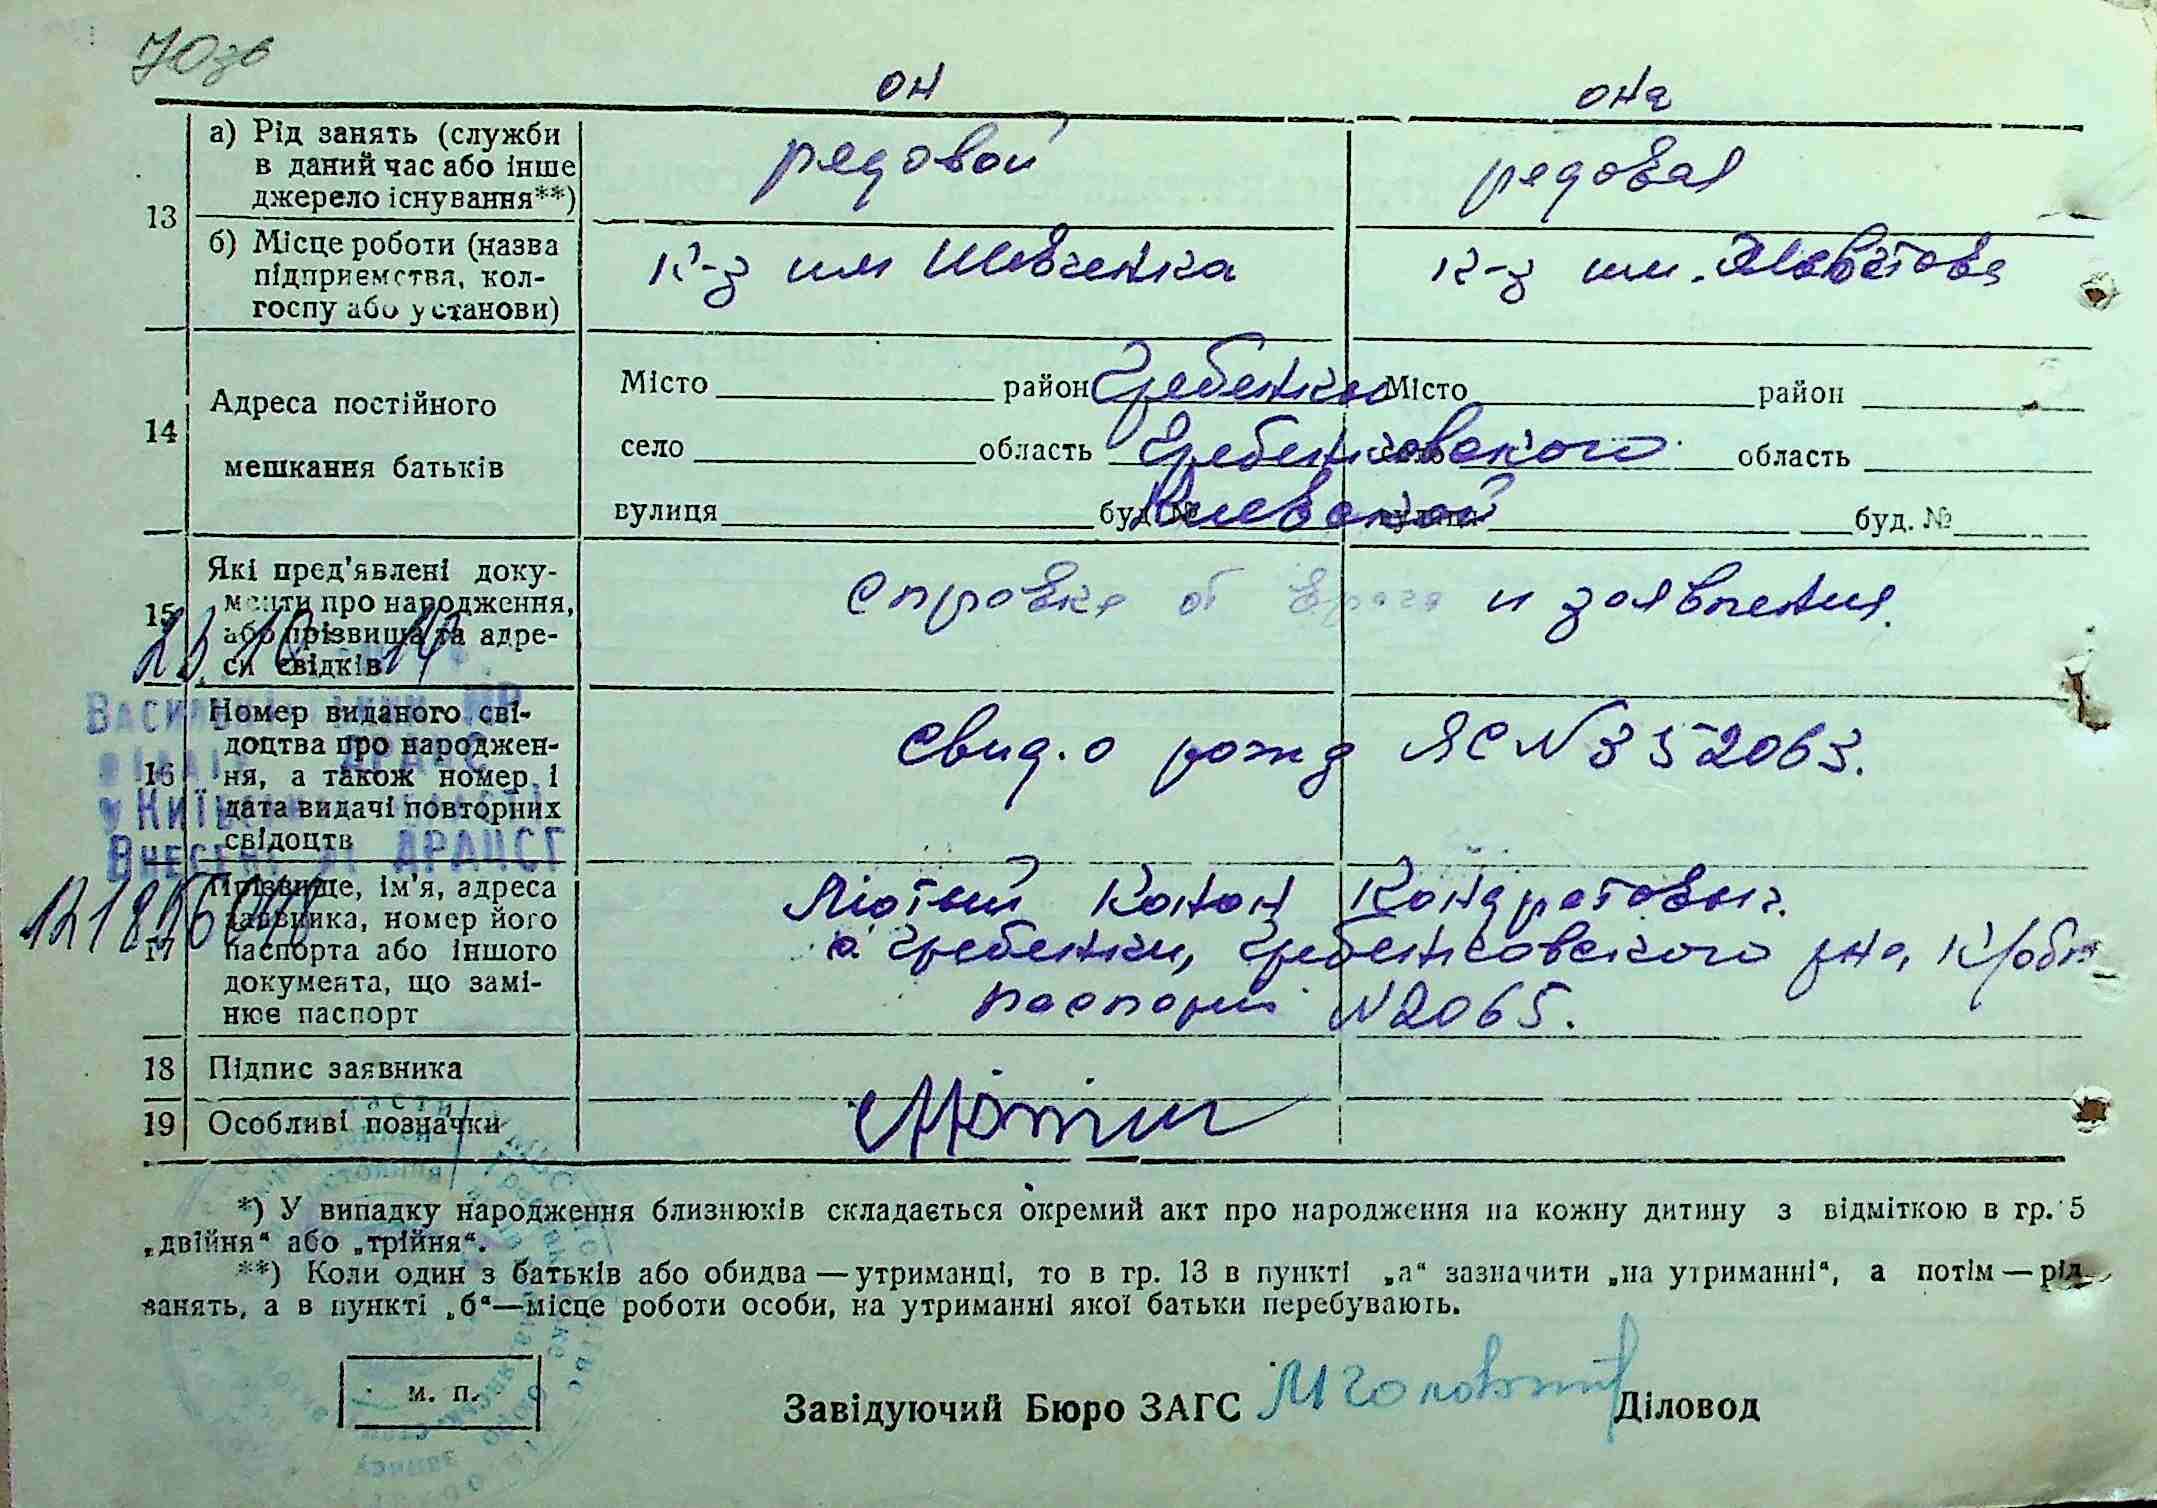 70зв
он
она
13
а) Рід занять (служби
в даний час або інше
джерело існування**)
редовой
редовая
б) Місце роботи (назва
підприємства, кол-
госпу або установи)
к-з им Шевченка
к-з им.
14
Адреса постійного
мешкання батьків
Місто район Гребенки Місто район
село область Гребенковского область
вулиця буд. № Киевской вулиця буд. №
15
Які пред'явлені доку-
менти про народження,
або прізвища та адре-
си свідків
Справка от врача и заявления.
23.10.14
16
Номер виданого сві-
доцтва про народжен-
ня, а також номер і
дата видачі повторних
свідоцтв
Свид. о рожд ЯС N 352063.
ДРАЦС
Внесено ДРАЦСГ
17
Прізвище, ім'я, адреса
заявника, номер його
паспорта або іншого
документа, що замі-
нює паспорт
Лютый Конон Кондратович.
с Гребенки, Гребенковского р-на, К/обл
паспорт N 2065.
18
Підпис заявника
19
Особливі позначки
*) У випадку народження близнюків складається окремий акт про народження на кожну дитину з відміткою в гр. 5
„двійня“ або „трійня“.
**) Коли один з батьків або обидва — утриманці, то в гр. 13 в пункті „а“ зазначити „на утриманні“, а потім — рід
занять, а в пункті „б“—місце роботи особи, на утриманні якої батьки перебувають.
м. п.
Завідуючий Бюро ЗАГС Діловод